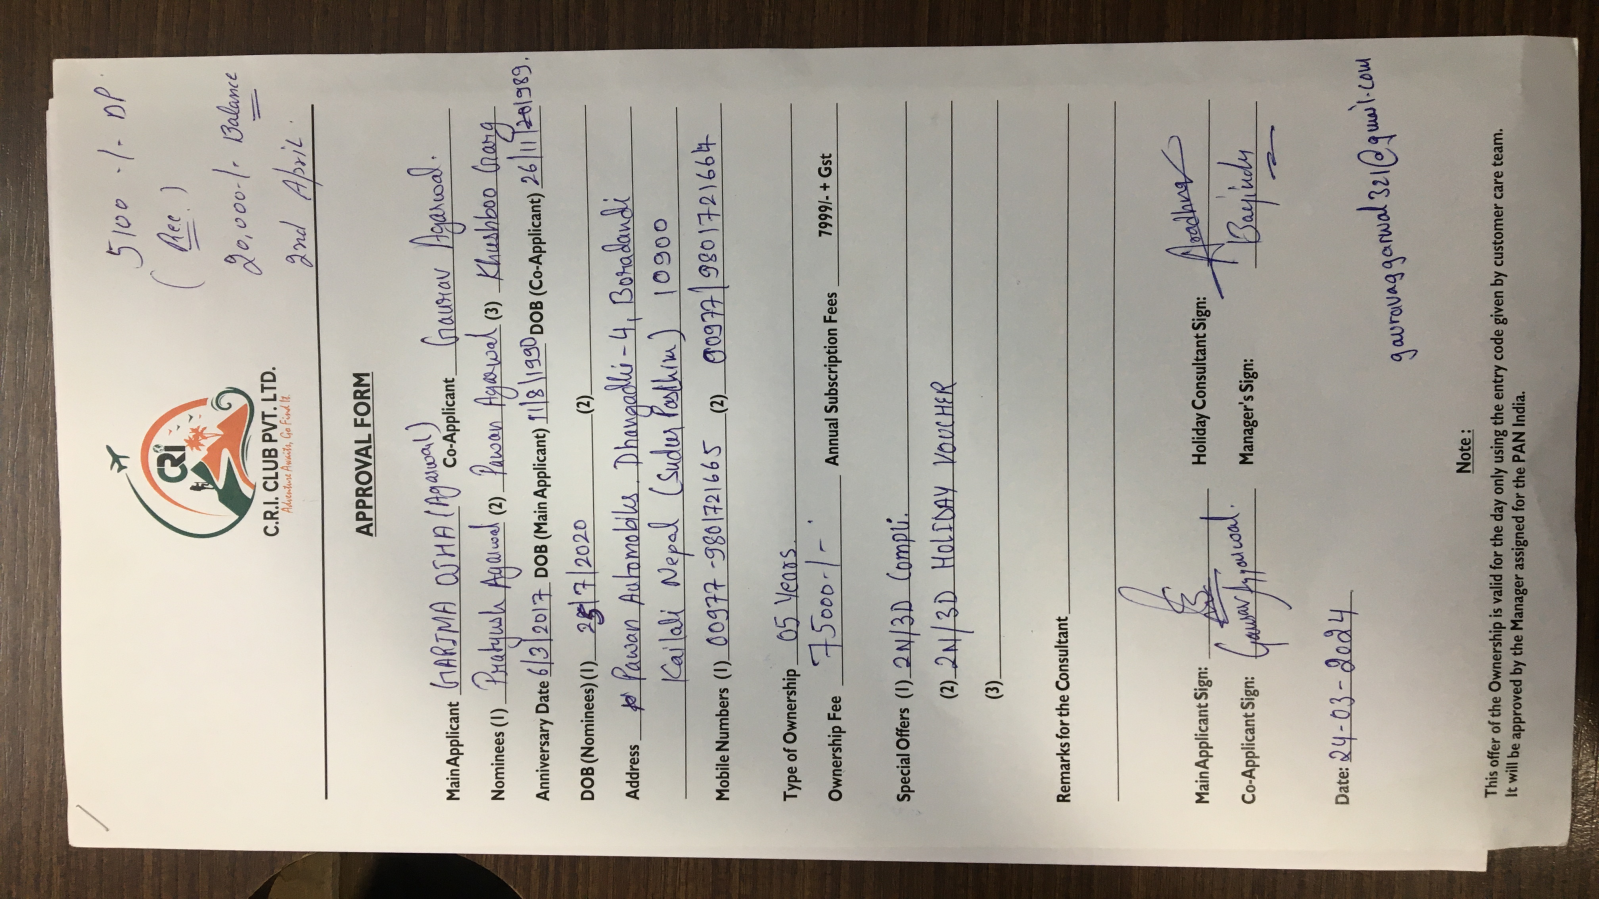 5100 ·/- DP.
(Rec.)
20,000·/- Balance
2nd April.
CRI
C.R.I. CLUB PVT. LTD.
Adventure Awaits, Go Find It.
APPROVAL FORM
Main Applicant GARIMA OJHA (Agarwal) Co-Applicant Gaurav Agarwal.
Nominees (1) Pratyush Agarwal (2) Pawan Agarwal (3) Khushboo Garg
Anniversary Date 6/3/2017 DOB (Main Applicant) 11/8/1990 DOB (Co-Applicant) 26/11/1989.
DOB (Nominees) (1) 25/7/2020 (2)
Address Pawan Automobiles, Dhangadhi-4, Boradandi
Kailali Nepal (Sudur Paschim) 10900
Mobile Numbers (1) 00977-9801721665 (2) 00977/9801721664
Type of Ownership 05 Years
Ownership Fee 75000·/- Annual Subscription Fees 7999/- + Gst
Special Offers (1) 2N/3D Compli.
(2) 2N/3D HOLIDAY VOUCHER
(3)
Remarks for the Consultant
Main Applicant Sign: Holiday Consultant Sign: Aradhna
Co-Applicant Sign: Gaurav Aggarwal. Manager's Sign:
Date: 24-03-2024
gauravaggarwal321@gmail.com
Note :
This offer of the Ownership is valid for the day only using the entry code given by customer care team.
It will be approved by the Manager assigned for the PAN India.